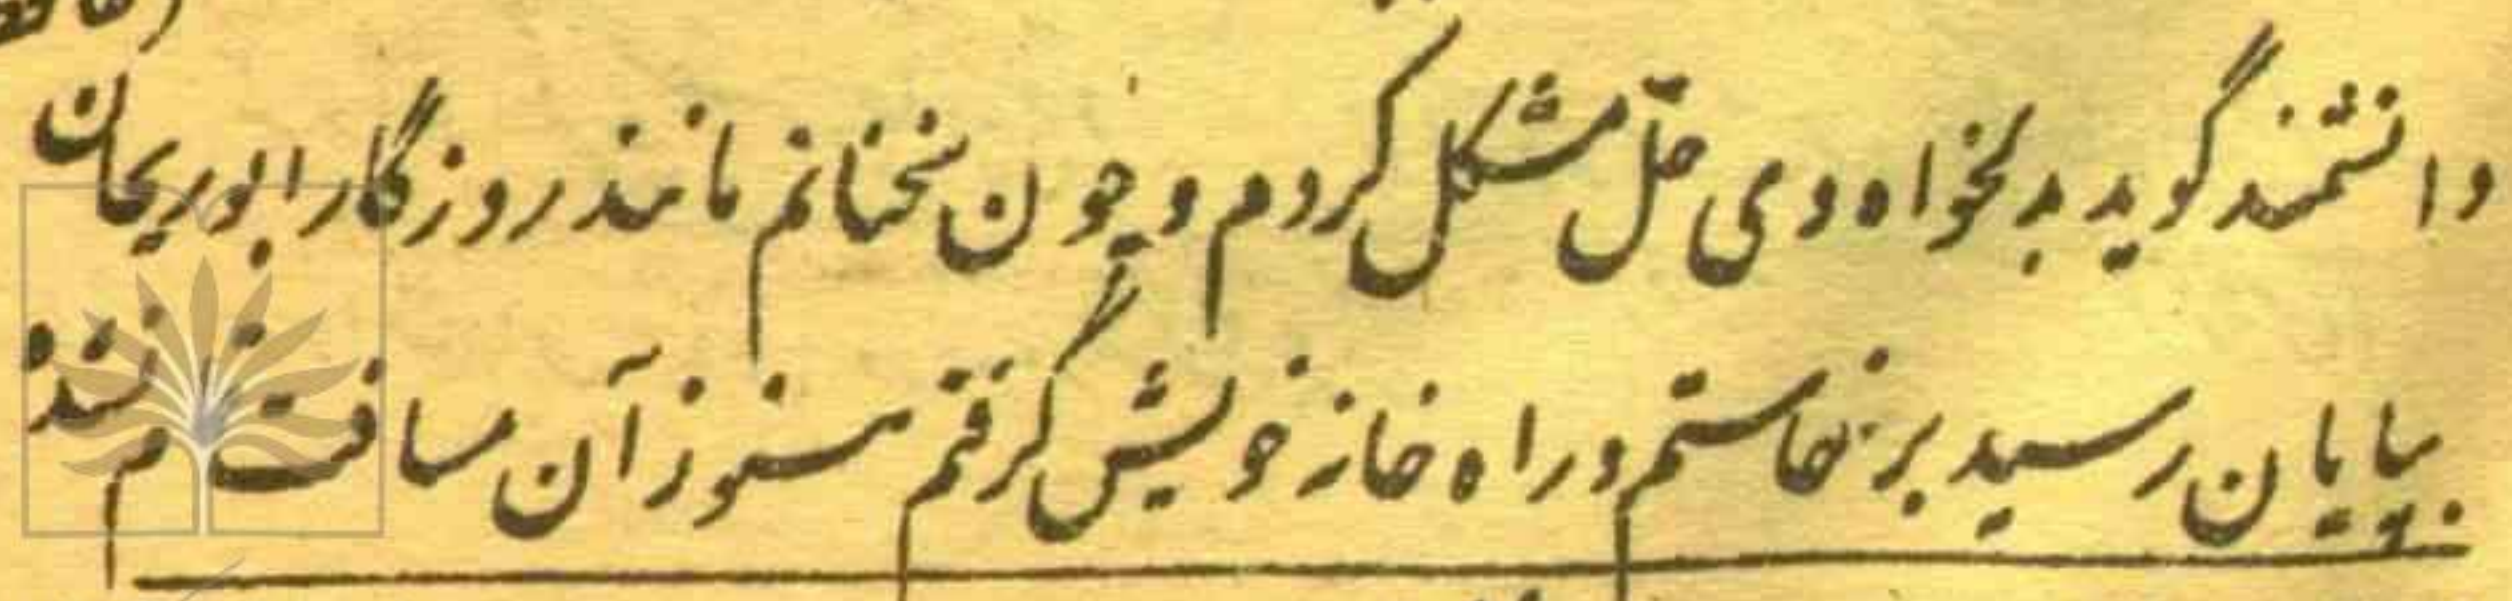 دانشمند گوید بدلخواه وی حلّ مشکل کردم و چون سخنانم مانند روزگار ابوریحان
بپایان رسید برخاستم و راه خانه خویش گرفتم هنوز آن مسافت م نشده